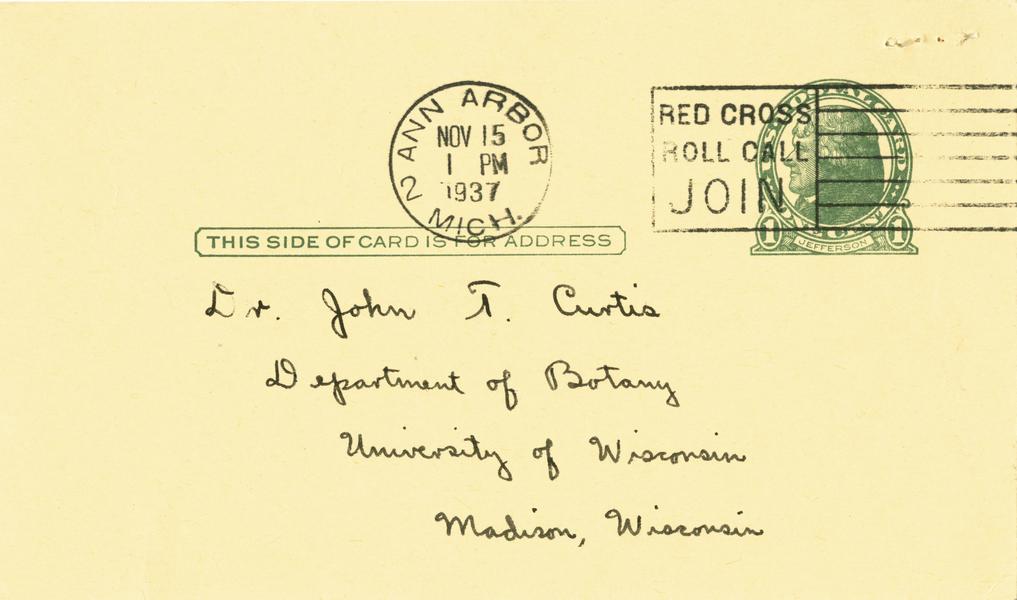 ANN ARBOR
NOV 15
1 PM
1937
2 MICH.
RED CROSS
ROLL CALL
JOIN
1 JEFFERSON 1
THIS SIDE OF CARD IS FOR ADDRESS
Dr. John T. Curtis
Department of Botany
University of Wisconsin
Madison, Wisconsin